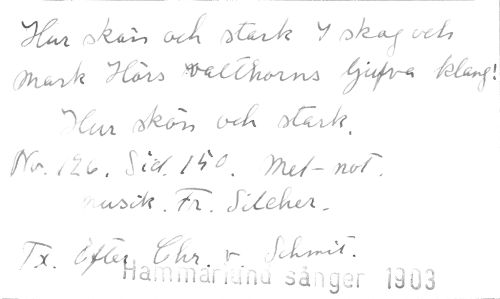 Hur skön och stark I skog och
mark Hörs valthorns ljufva klang!
Hur skön och stark.
No. 126. Sid. 150. Met-not.
musik. Fr. Silcher.
Tx. Efter Chr. v. Schmit.
Hammarland sånger 1903